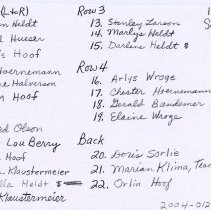 (L to R)
Heldt
Hueser
Hoof
Hoernemann
Halverson
Hoof
Olson
Lou Berry
Hoof
Klaustermeier
Heldt
Klaustermeier
Row 3
13. Stanley Larson
14. Marlys Heldt
15. Darlene Heldt
Row 4
16. Arlys Wroge
17. Chester Hoernemann
18. Gerald Bandemer
19. Elaine Wroge
Back
20. Doris Sorlie
21. Marian Klima, Teac
22. Orlin Hoof
2004-012